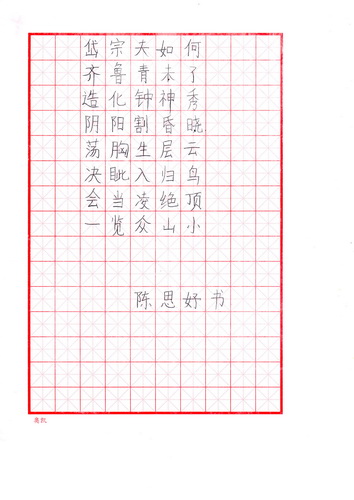 岱宗夫如何
齐鲁青未了
造化钟神秀
阴阳割昏晓
荡胸生层云
决眦入归鸟
会当凌绝顶
一览众山小
陈思妤书